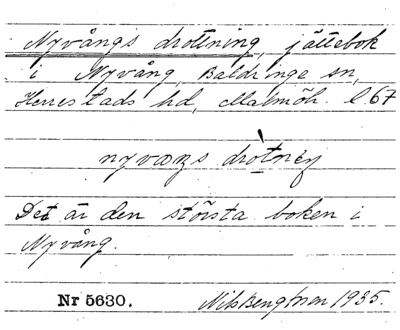 Nyvångs drottning, jättebok
i Nyvång, Baldringe sn,
Herrestads hd, Malmöh. l. 67
nyvaŋs drotneŋ
Det är den största boken i
Nyvång.
Nr 5630. Nils Bengtsson 1935.